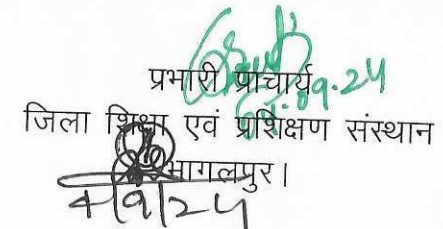 प्रभारी प्राचार्य
जिला शिक्षा एवं प्रशिक्षण संस्थान
भागलपुर।
4/9/24